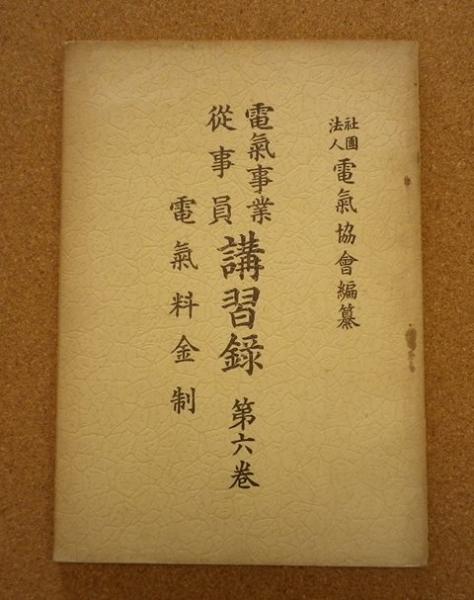 社團法人 電氣協會編纂
電氣事業從事員 講習錄 第六卷
電氣料金制